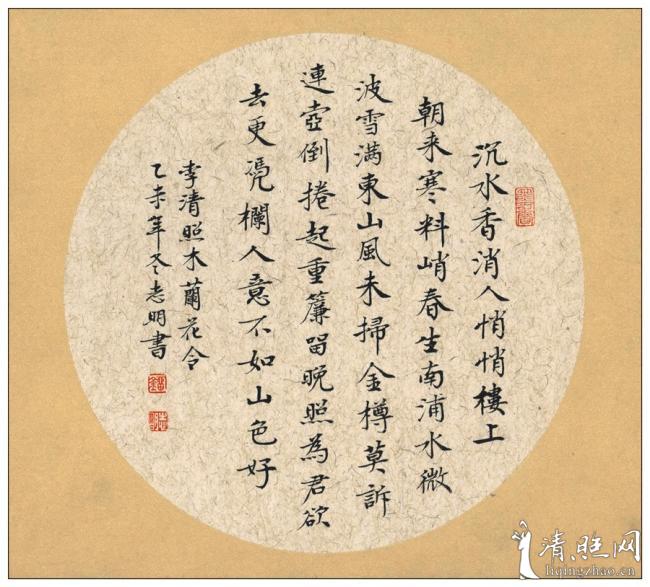 沉水香消人悄悄樓上
朝来寒料峭春生南浦水微
波雪满東山風未掃金樽莫訴
連壺倒捲起重簾留晚照為君欲
去更凭欄人意不如山色好
李清照木蘭花令
乙未年冬志明書
清照网
liqingzhao.cn